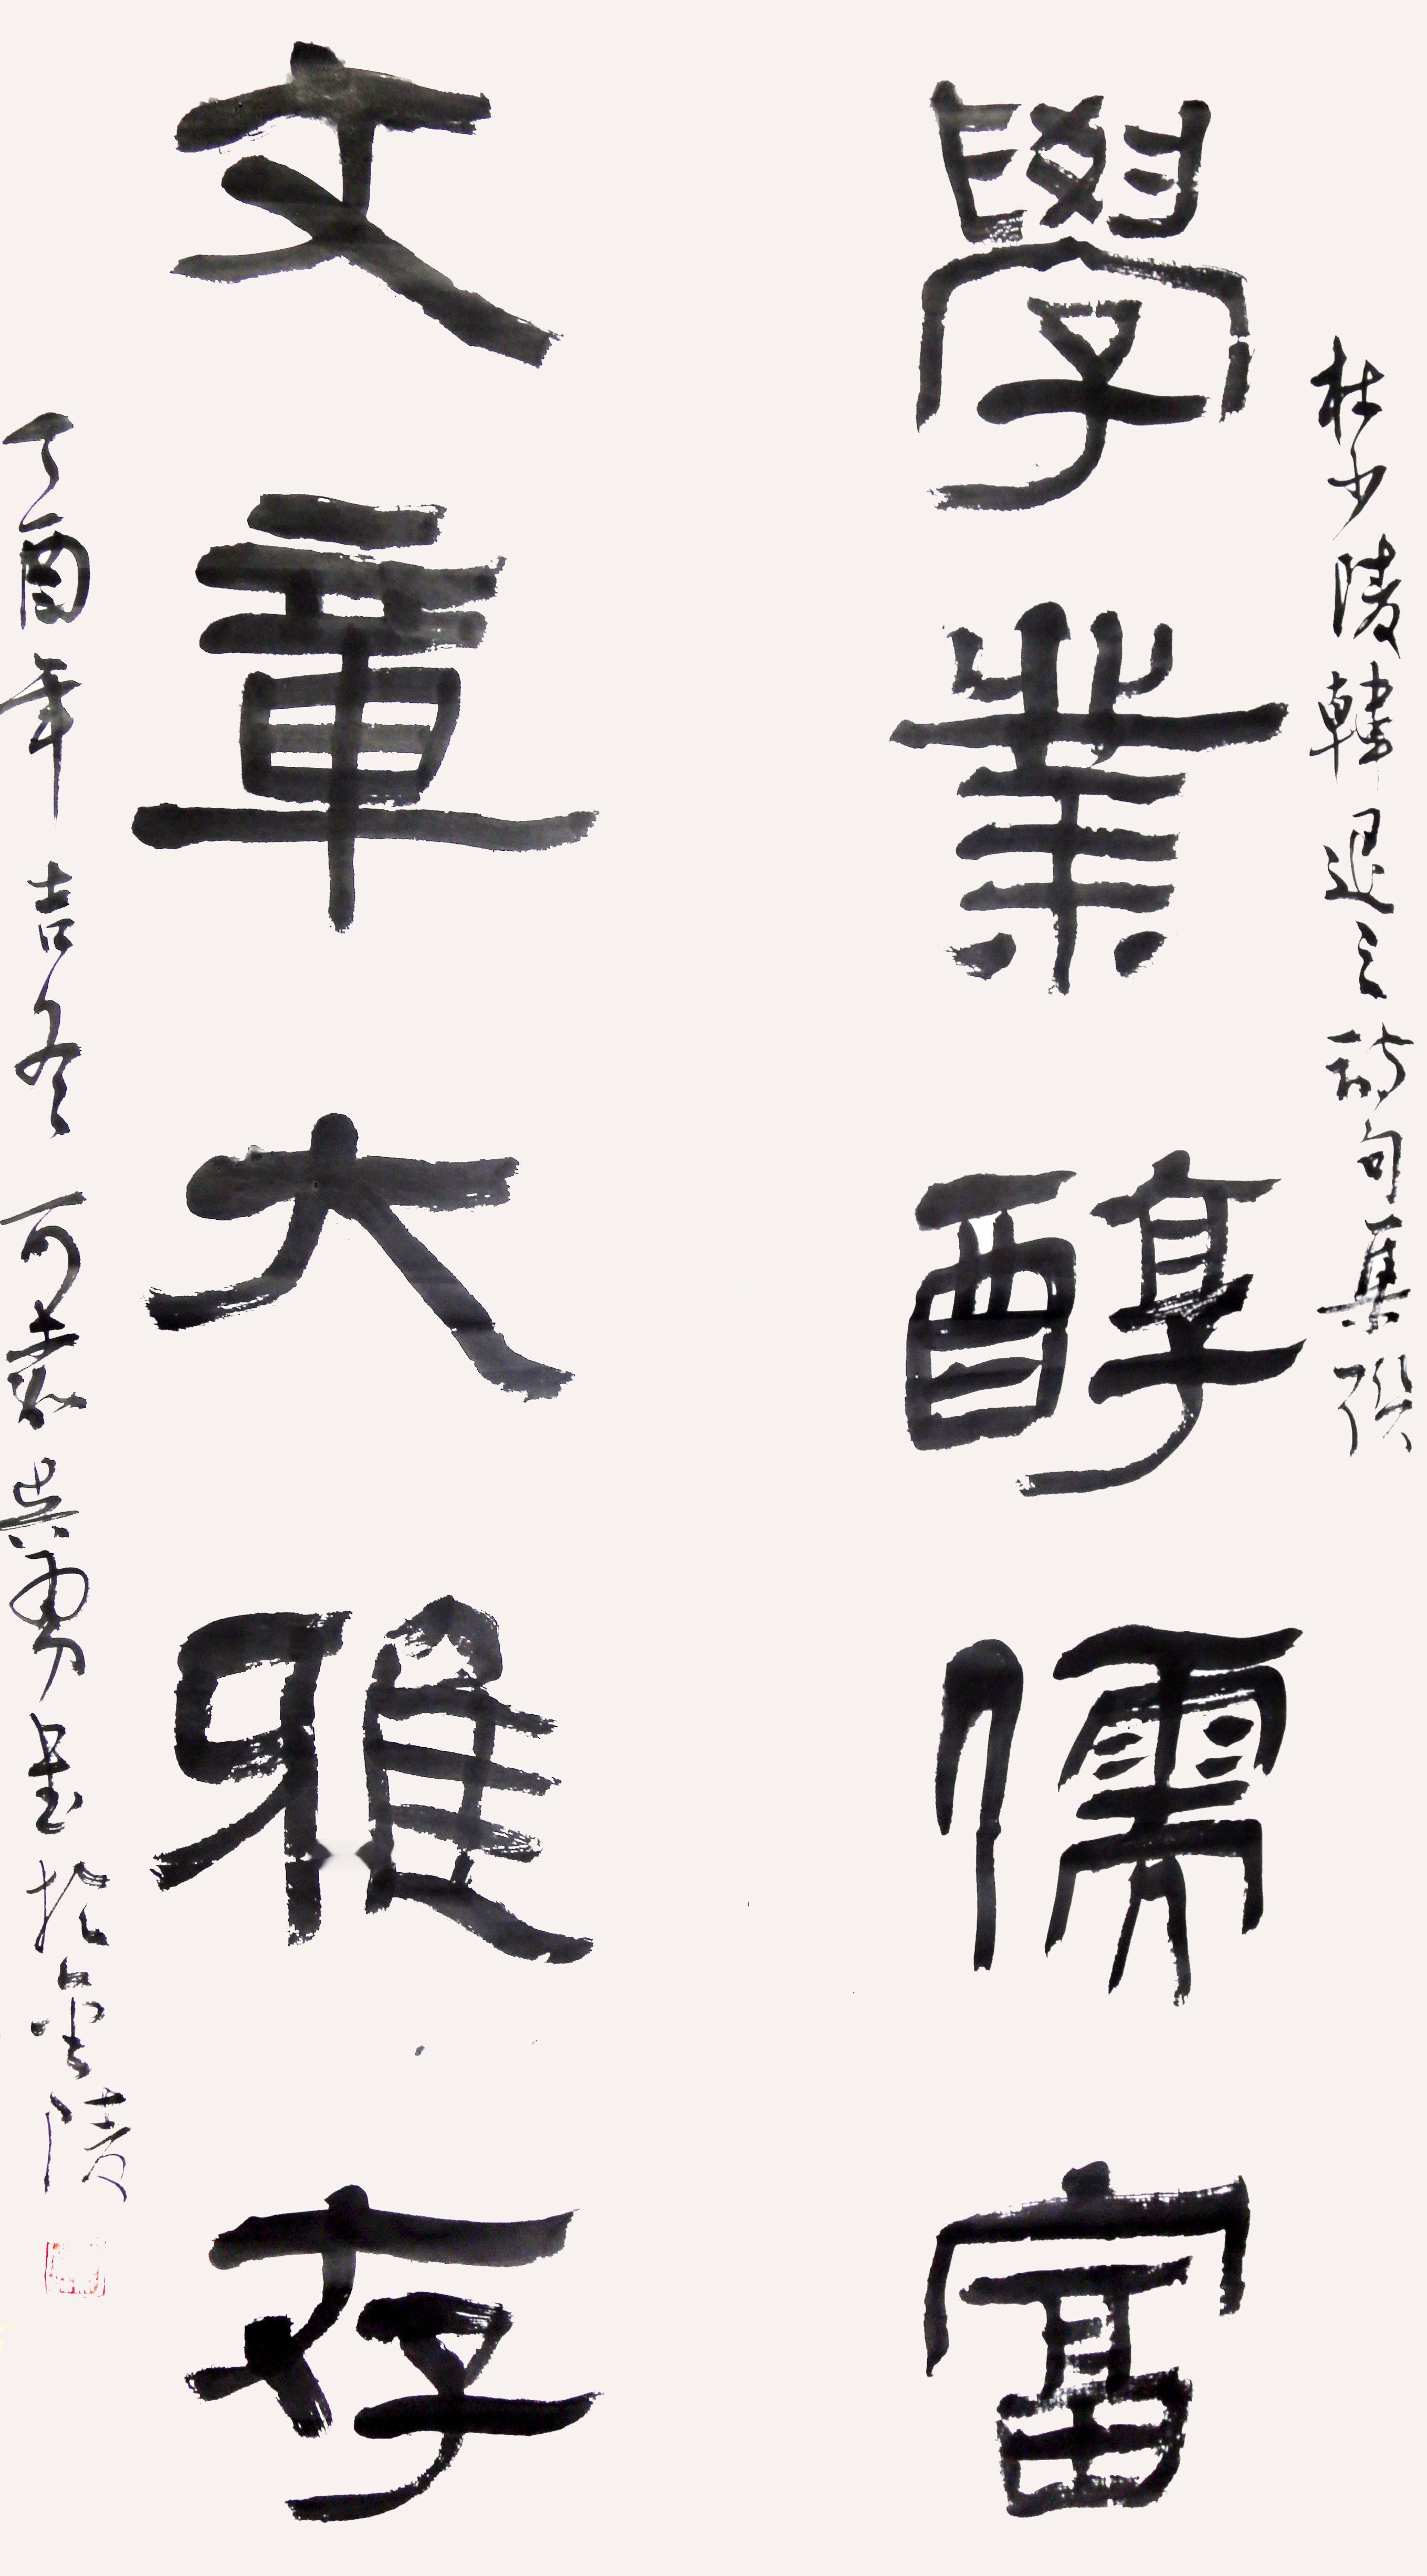 杜少陵韓退之詩句集聯
學業醇儒富
文章大雅存
丁酉年吉冬 可嘉吳勇書於金陵